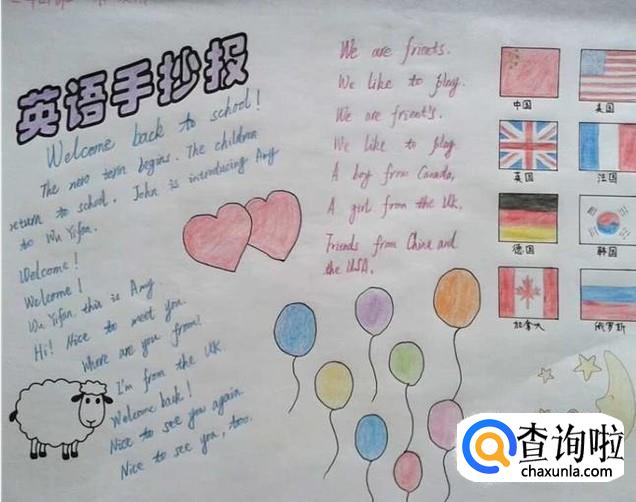 英语手抄报
Welcome back to school!
The new term begins. The children
return to school. John is introducing Amy
to Wu Yifan.
Welcome!
Welcome!
Wu Yifan, this is Amy.
Hi! Nice to meet you.
Where are you from?
I'm from the UK.
Welcome back!
Nice to see you again.
Nice to see you, too.
We are frients.
We like to play.
We are frient's.
We like to play
A boy from Canada,
A girl from the UK,
Friends from China and
the USA.
中国
美国
英国
法国
德国
韩国
加拿大
俄罗斯
查询啦
chaxunla.com